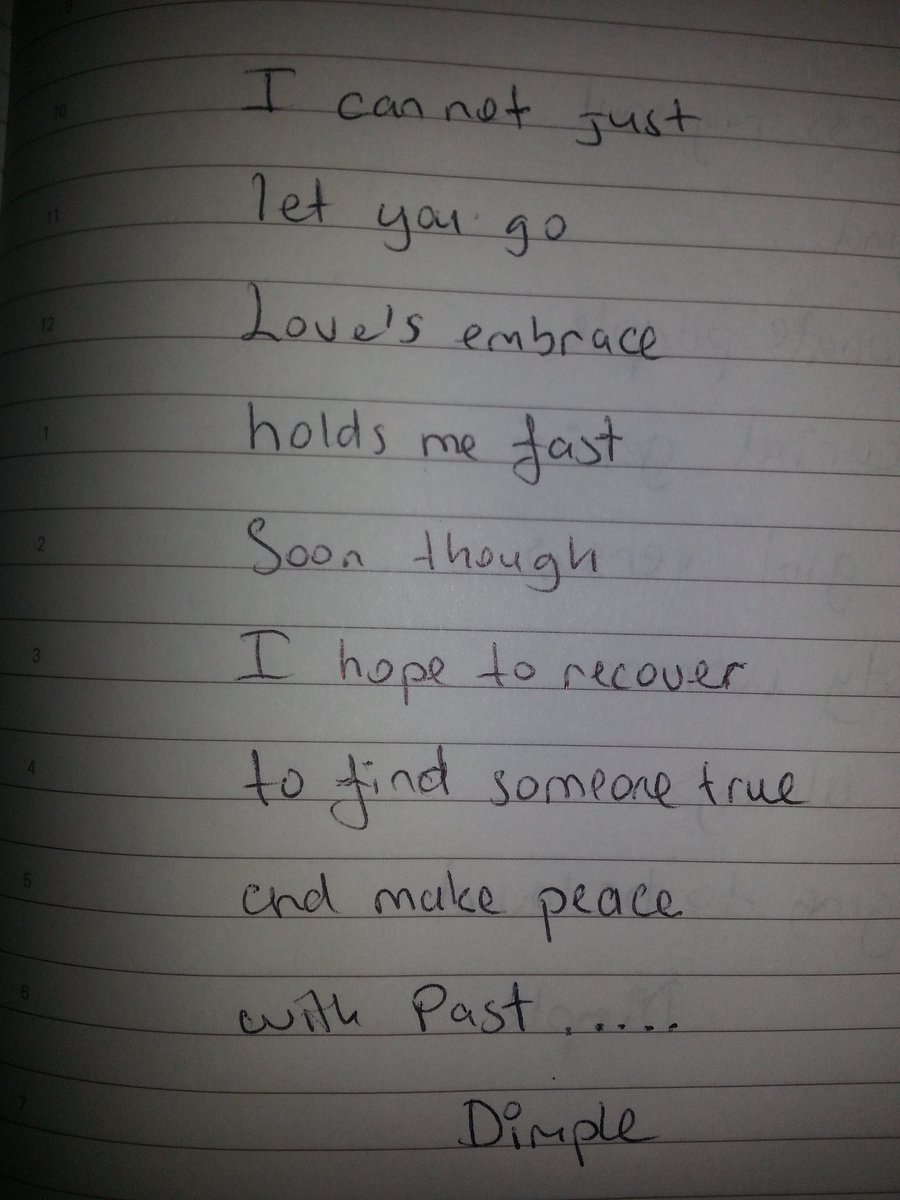 10 I can not just
11 let you go
12 Love's embrace
1 holds me fast
2 Soon though
3 I hope to recover
4 to find someone true
5 and make peace
6 with Past .....
7 Dimple